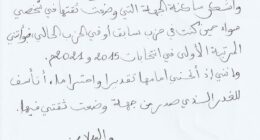 وأشعلي ساكنة الجهة التي وضعت ثقتها في شخصي
سواء حين كنت في حزب سابق أو في الحزب الحالي فبوأتني
المرتبة الأولى في انتخابات 2015 و 2021م.
وإنني إذ أنحني أمامها تقديرا واحتراما، أتأسف
للغدر الذي صدر من جهة وضعت ثقتي فيها.
والسلام